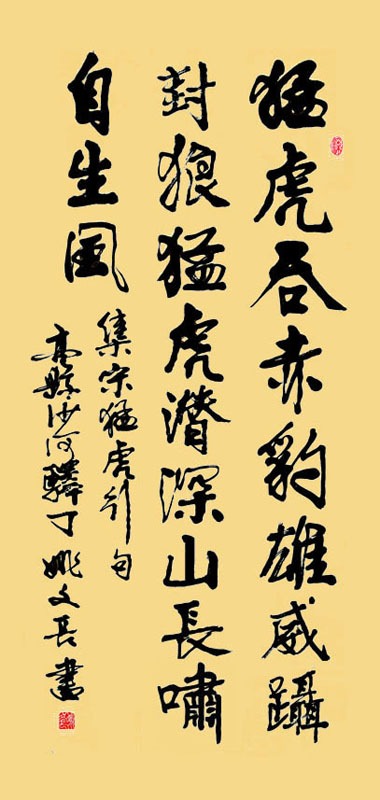 猛虎吞赤豹雄威躡
封狼猛虎潛深山長嘯
自生風
集宋猛虎行句
高縣沙河驛丁姚文長書